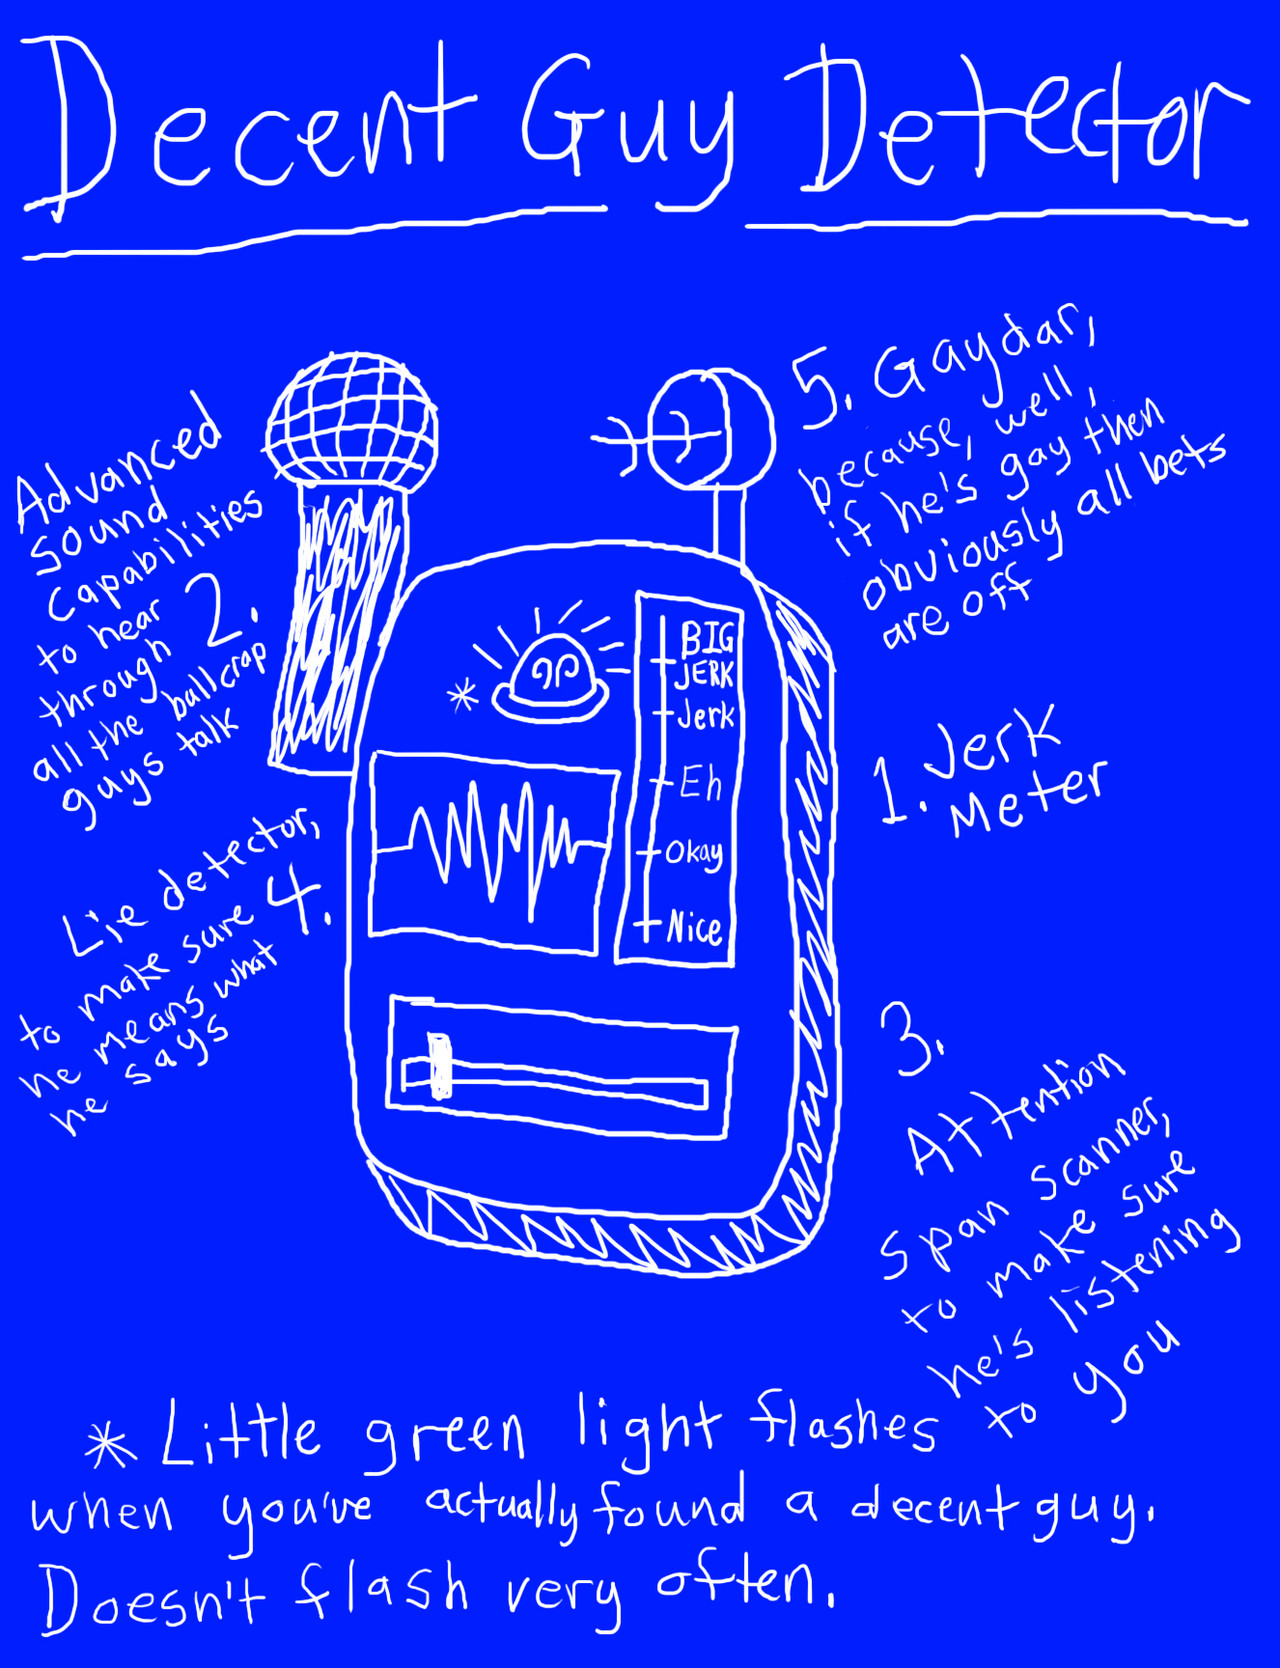 Decent Guy Detector
Advanced
sound
capabilities
to hear
through
all the ballcrap
guys talk
2.
5. Gaydar,
because, well,
if he's gay then
obviously all bets
are off
*
BIG
JERK
Jerk
Eh
Okay
Nice
1. Jerk
Meter
Lie detector,
to make sure
he means what
he says
4.
3.
Attention
span scanner,
to make sure
he's listening
to you
* Little green light flashes
when you've actually found a decent guy.
Doesn't flash very often.